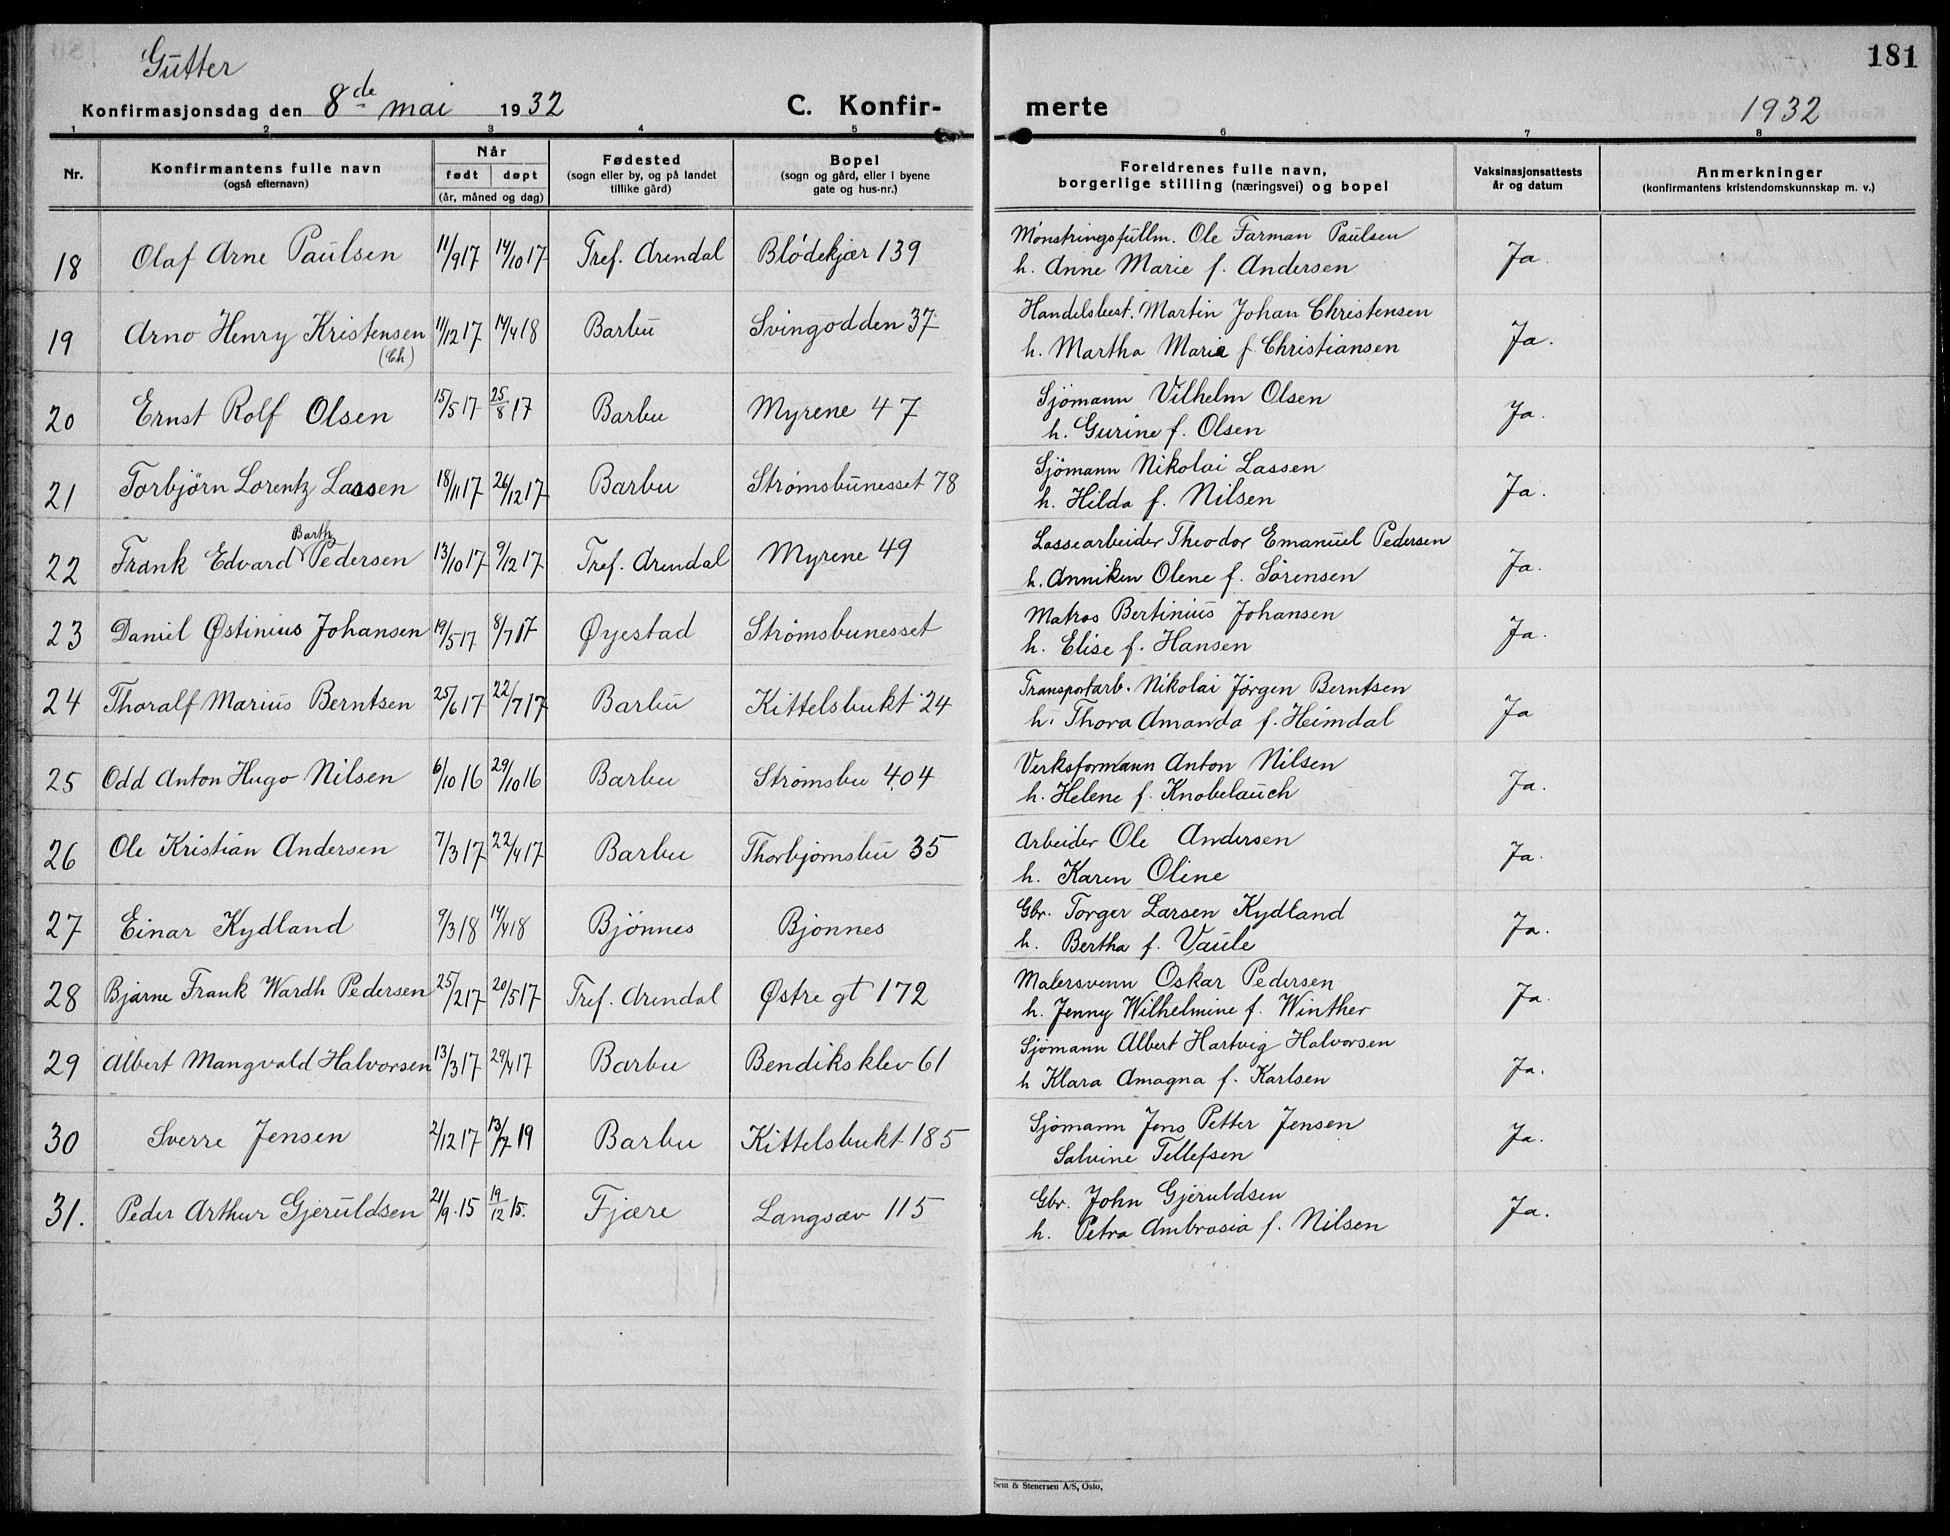 Gutter
181
Konfirmasjonsdag den 8de mai 1932 C. Konfirmerte 1932
1 2 3 4 5 6 7 8
Nr. Konfirmantens fulle navn (også efternavn) Når født døpt (år, måned og dag) Fødested (sogn eller by, og på landet tillike gård) Bopel (sogn og gård, eller i byene gate og hus-nr.) Foreldrenes fulle navn, borgerlige stilling (næringsvei) og bopel Vaksinasjonsattests år og datum Anmerkninger (konfirmantens kristendomskunnskap m. v.)
18 Olaf Arne Paulsen 11/9 17 14/10 17 Tref. Arendal Blødekjær 139 Mønstringsfullm. Ole Farman Paulsen
h. Anne Marie f. Andersen Ja.
19 Arno Henry Kristensen (Ch) 11/12 17 14/4 18 Barbu Svingodden 37 Handelsbest. Martin Johan Christensen
h. Martha Marie f Christiansen Ja.
20 Ernst Rolf Olsen 15/5 17 25/8 17 Barbu Myrene 47 Sjömann Vilhelm Olsen
h. Gurine f. Olsen Ja.
21 Torbjørn Lorentz Lassen 18/11 17 26/12 17 Barbu Strømsbunesset 78 Sjömann Nikolai Lassen
h. Hilda f. Nilsen Ja.
22 Frank Edvard Barth Pedersen 13/10 17 9/12 17 Tref. Arendal Myrene 49 Lossearbeider Theodor Emanuel Pedersen
h. Anniken Olene f. Sörensen Ja.
23 Daniel Østinius Johansen 19/5 17 8/7 17 Øyestad Strømsbunesset Matros Bertinius Johansen
h. Elise f. Hansen Ja.
24 Thoralf Marius Berntsen 25/6 17 22/7 17 Barbu Kittelsbukt 24 Transportarb. Nikolai Jörgen Berntsen
h. Thora Amanda f. Heimdal Ja
25 Odd Anton Hugo Nilsen 6/10 16 29/10 16 Barbu Strømsbu 404 Verksformann Anton Nilsen
h. Helene f. Knobelauch Ja.
26 Ole Kristian Andersen 7/3 17 22/4 17 Barbu Thorbjørnsbu 35 Arbeider Ole Andersen
h. Karen Oline Ja.
27 Einar Kydland 9/3 18 14/4 18 Bjønnes Bjønnes Gbr. Torger Larsen Kydland
h. Bertha f. Vaule Ja.
28 Bjarne Frank Wardh Pedersen 25/2 17 20/5 17 Tref. Arendal Østre gt 172 Malersvenn Oskar Pedersen
h. Jenny Wilhelmine f. Winther Ja.
29 Albert Mangvald Halvorsen 13/3 17 29/4 17 Barbu Bendiksklev 61 Sjömann Albert Hartvig Halvorsen
h Klara Amagna f. Karlsen Ja.
30 Sverre Jensen 2/12 17 13/7 19 Barbu Kittelsbukt 185 Sjömann Jens Petter Jensen
Salvine Tellefsen Ja.
31. Peder Arthur Gjeruldsen 21/9. 15 19/12 15. Fjære Langsæv 115 Gbr. John Gjeruldsen
h. Petra Ambrosia f. Nilsen Ja.
Sem & Stenersen A/S, Oslo,